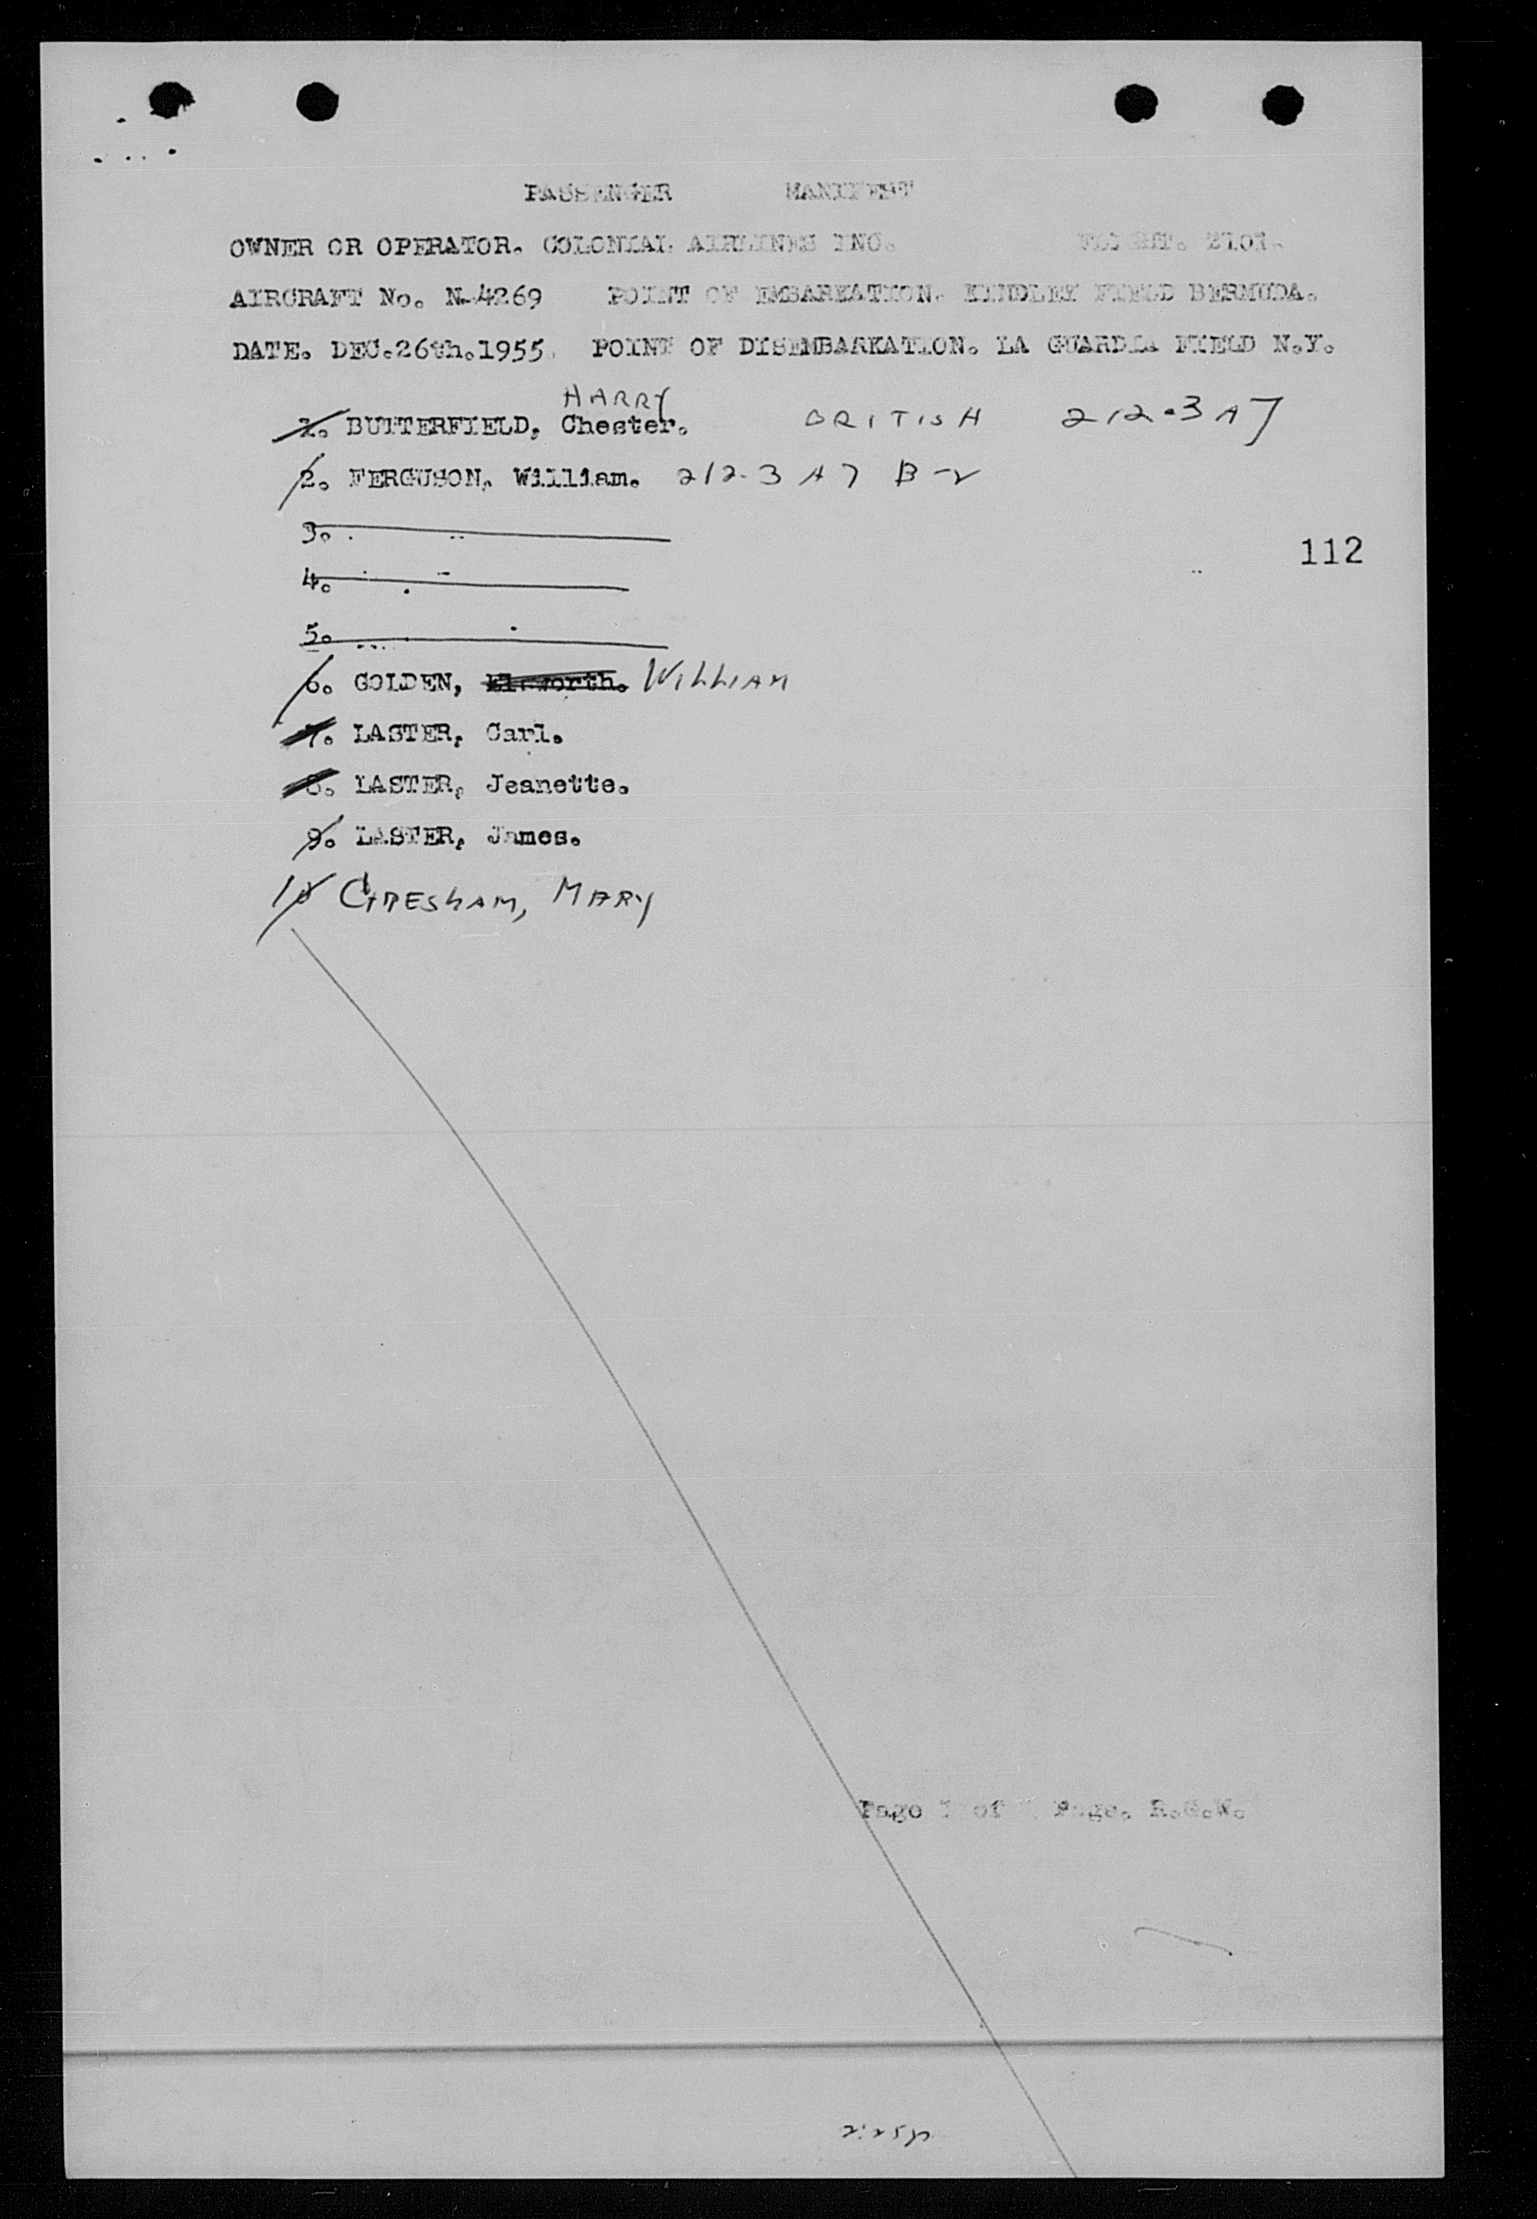 PASSENGER MANIFEST
OWNER OR OPERATOR. COLONIAL AIRLINES INC. FLIGHT. 2101.
AIRCRAFT No. N-4269 POINT OF EMBARKATION. KINDLEY FIELD BERMUDA.
DATE. DEC.26th.1955. POINT OF DISEMBARKATION. LA GUARDIA FIELD N.Y.
HARRY
1. BUTTERFIELD, Chester. BRITISH 212.3 A7
2. FERGUSON, William. 212.3 A7 B-2
3.
4.
112
5.
6. GOLDEN, Elsworth. WILLIAM
7. LASTER, Carl.
8. LASTER, Jeanette.
9. LASTER, James.
10 GRESHAM, MARY
Page 1 of Page. R.G.W.
2:25p